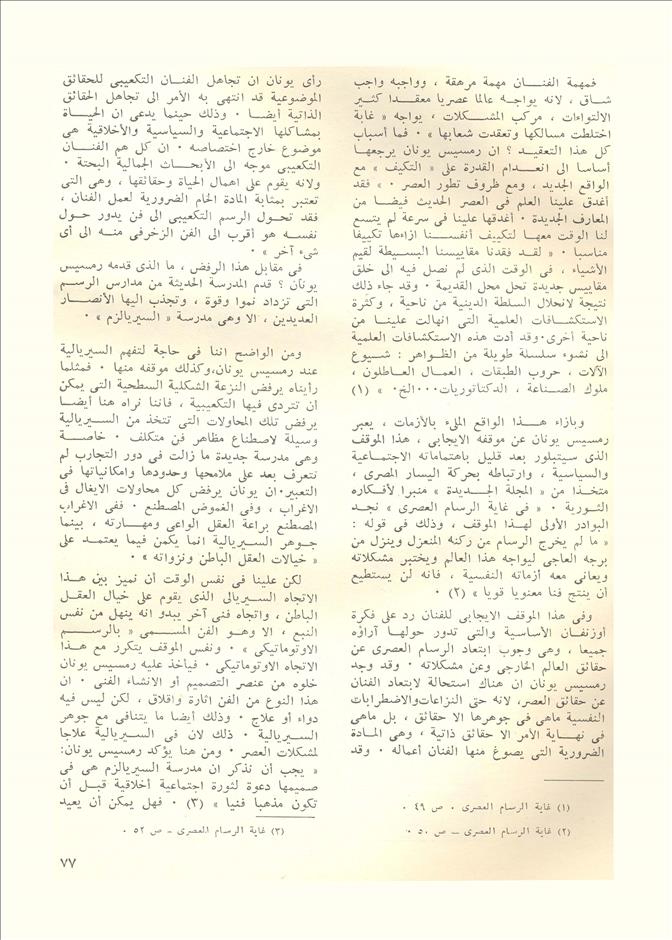 فمهمة الفنـــان مهمة مرهقة ، وواجبه واجب
شـاق ، لانه يواجـه عالما عصريا معقـدا كثـير
الالتواءات ، مركب المشـــكلات ، يواجه « غابة
اختلطت مسالكها وتعقدت شعابها » ۰ فما أسباب
كل هذا التعقيـد ؟ ان رمسيس يونان يرجعهـا
أساسا الى انعـدام القدرة على « التكيف » مع
الواقع الجديد ، ومع ظروف تطور العصر ۰ « فقد
أغدق علينا العلم فى العصر الحديث فيضـا من
المعارف الجديدة ۰ أغدقها علينا فى سرعة لم يتسع
لنا الوقت معهـا لتكييف أنفســنا ازاءها تكييفا
مناسبا ۰ « لقـد فقدنا مقاييسنا البسـيطة لقيم
الأشياء ، فى الوقت الذى لم نصل فيه الى خلق
مقاييس جديدة تحل محل القديمة ۰ وقد جاء ذلك
نتيجة لانحلال السلطة الدينية من ناحية ، وكثرة
الاستكشـافات العلمية التى انهالت علينـا من
ناحية أخرى۰وقد أدت هذه الاستكشافات العلمية
الى نشوء سلسلة طويلة من الظواهر : شـيوع
الآلات ، حروب الطبقات ، العمـال العـاطلون ،
ملوك الصـناعة ، الدكتاتوريات۰۰۰الخ۰ » (١)
وبازاء هـــذا الواقع الملىء بالأزمات ، يعبر
رمسيس يونان عن موقفه الايجابى ، هذا الموقف
الذى سيتبلور بعد قليل باهتماماته الاجتمـاعية
والسياسية ، وارتباطه بحركة اليسار المصرى ،
متخـذا من « المجلة الجــديدة » منبرا لأفـكاره
الثـورية ۰ « فى غاية الرسام العصرى » نجـد
البوادر الأولى لهـذا الموقف ، وذلك فى قوله :
« ما لم يخرج الرسام من ركنه المنعزل وينزل من
برجه العاجى ليواجه هذا العالم ويختبر مشكلاته
ويعانى معه أزماته النفسية ، فانه لن يستطيع
أن ينتج فنا معنويا قويا » (٢) ۰
وفى هذا الموقف الايجابى للفنان رد على فكرة
أوزنفـان الأساسية والتى تدور حولهـا آراؤه
جميعا ، وهى وجوب ابتعاد الرسام العصرى عن
حقائق العالم الخارجى وعن مشكلاته ۰ وقد وجد
رمسيس يونان ان هناك استحالة لابتعاد الفنان
عن حقائق العصر، لانه حتى النزاعات والاضطرابات
النفسية ماهى فى جوهرها الا حقائق ، بل ماهى
فى نهـاية الأمر الا حقائق ذاتية ، وهى المـادة
الضرورية التى يصوغ منها الفنان أعماله ۰ وقد
(١) غاية الرسام العصرى ۰ ص ٤٩ ۰
(٢) غاية الرسام العصرى ــ ص ٥٠ ۰
رأى يونان ان تجاهل الفنــان التكعيبى للحقائق
الموضوعية قد انتهى به الأمر الى تجاهل الحقائق
الذاتية أيضـا ۰ وذلك حينما يدعى ان الحيـاة
بمشاكلها الاجتماعية والسياسية والأخلاقية هى
موضوع خارج اختصاصه ۰ ان كل هم الفنــان
التكعيبى موجه الى الأبحـاث الجمالية البحتة ۰
ولانه يقوم على اهمال الحياة وحقائقها ، وهى التى
تعتبر بمثابة المادة الخام الضرورية لعمل الفنان ،
فقد تحـول الرسم التكعيبى الى فن يدور حـول
نفسـه هو أقرب الى الفن الزخرفى منـه الى أى
شىء آخر » ۰
فى مقابل هذا الرفض ، ما الذى قدمه رمسيس
يونان ؟ قدم المدرسة الحديثة من مدارس الرسـم
التى تزداد نموا وقوة ، وتجذب اليها الأنصـار
العديدين ، الا وهى مدرسـة « السيريالزم » ۰
ومن الواضـح اننا فى حاجة لتفهم السيريالية
عند رمسيس يونان،وكذلك موقفه منها ۰ فمثلما
رأيناه يرفض النزعة الشكلية السطحية التى يمكن
ان تتردى فيها التكعيبية ، فاننا نراه هنا أيضـا
يرفض تلك المحاولات التى تتخذ من السـيريالية
وسيلة لاصطناع مظاهر فن متكلف ۰ خاصــة
وهى مدرسة جديدة ما زالت فى دور التجارب لم
تتعرف بعد على ملامحها وحدودها وامكانياتها فى
التعبير۰ان يونان يرفض كل محاولات الايغال فى
الاغراب ، وفى الغموض المصطنع ۰ ففى الاغراب
المصطنع براعة العقل الواعى ومهــارته ، بينما
جـوهر السـيريالية انما يكمن فيما يعتمـد على
« خيالات العقل الباطن ونزواته » ۰
لكن علينا فى نفس الوقت أن نميز بين هـذا
الاتجاه السيريالى الذى يقوم على خيال العقـل
الباطن ، واتجاه فنى آخر يبدو انه ينهل من نفس
النبع ، الا وهـو الفن المسـمى « بالرســم
الاوتوماتيكى » ۰ ونفس الموقف يتكرر مع هـذا
الاتجاه الاوتوماتيكى ۰ فيأخذ عليه رمسيس يونان
خلوه من عنصر التصميم أو الانشاء الفنى ۰ ان
هذا النوع من الفن اثارة واقلاق ، لكن ليس فيه
دواء أو علاج ۰ وذلك أيضا ما يتنافى مع جوهر
السـيريالية ۰ ذلك لان فى السـيريالية علاجا
لمشكلات العصر ۰ ومن هنا يؤكد رمسيس يونان:
« يجب أن نذكر ان مدرسة السيريالزم هى فى
صميمها دعوة لثورة اجتماعية أخلاقية قبـل أن
تكون مذهبا فنيا » (٣) ۰ فهل يمكن أن يعيد
(٣) غاية الرسام العصرى ـ ص ٥٢ ۰
٧٧